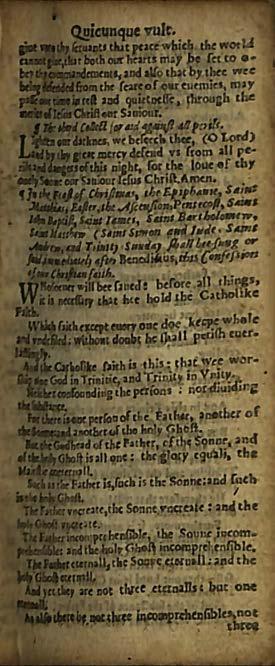 Quicunque vult.
giue vnto thy seruants that peace which the world
cannot giue, that both our hearts may be set to o-
bey thy commandements, and also that by thee wee
being defended from the feare of our enemies, may
passe our time in rest and quietnesse, through the
merits of Iesus Christ our Sauiour.
¶ The third Collect for aid against all perils.
Lighten our darknes, we beseech thee, (O Lord)
and by thy great mercy defend vs from all pe-
rils and dangers of this night, for the loue of thy
onely Sonne our Sauiour Iesus Christ. Amen.
¶ In the Feast of Christmas, the Epiphanie, Saint
Matthias, Easter, the Ascension, Pentecost, Saint
Iohn Baptist, Saint Iames, Saint Bartholomew,
Saint Matthew (Saint Simon and Iude, Saint
Andrew, and Trinity Sunday shall bee sung or
said immediately after Benedictus, this Confession
of our Christian faith.
Whosoeuer will bee saued: before all things,
it is necessary that hee hold the Catholike
Faith.
Which faith except euery one doe keepe whole
and vndefiled: without doubt he shall perish euer-
lastingly.
And the Catholike faith is this: that wee wor-
ship one God in Trinitie, and Trinity in Vnity.
Neither confounding the persons: nor diuiding
the substance.
For there is one person of the Father, another of
the Sonne: and another of the holy Ghost.
But the Godhead of the Father, of the Sonne, and
of the holy Ghost is all one: the glory equall, the
Maiestie coeternall.
Such as the Father is, such is the Sonne: and such
is the holy Ghost.
The Father vncreate, the Sonne vncreate: and the
holy Ghost vncreate.
The Father incomprehensible, the Sonne incom-
prehensible: and the holy Ghost incomprehensible.
The Father eternall, the Sonne eternall: and the
holy Ghost eternall.
And yet they are not three eternalls: but one
eternall.
As also there be not three incomprehensibles, not
three